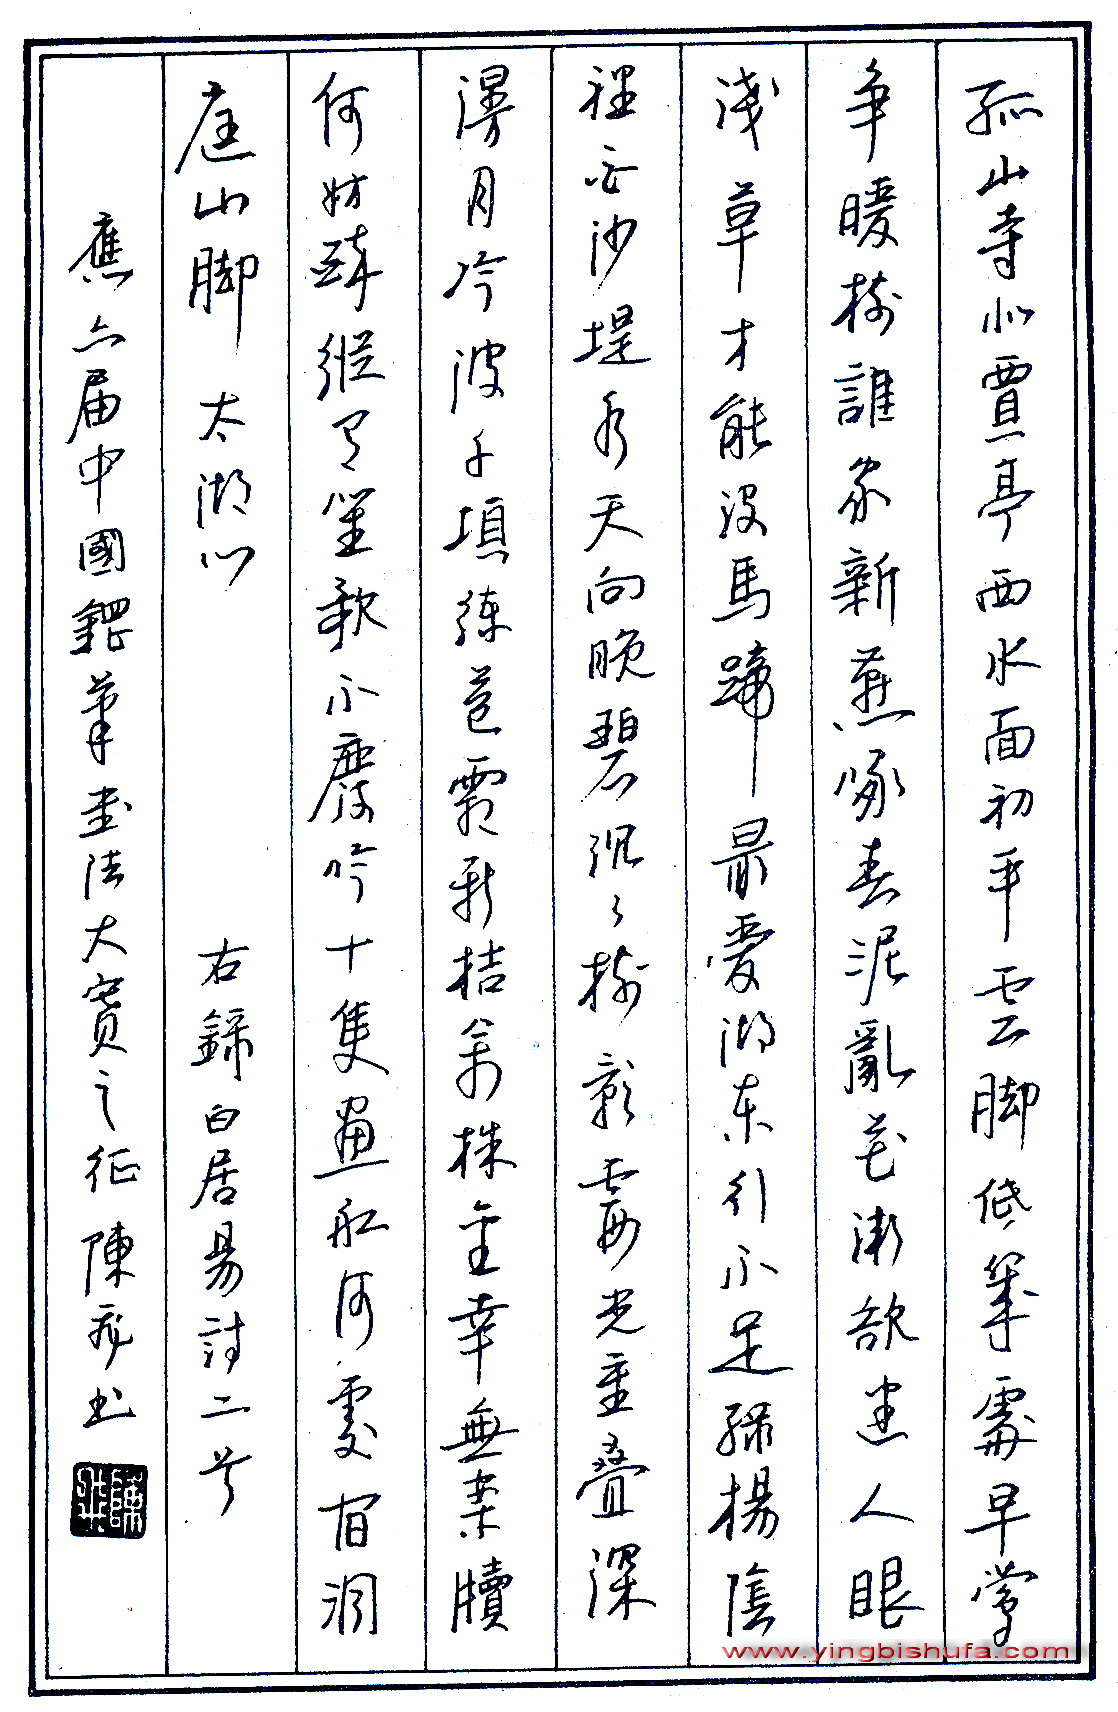 孤山寺北賈亭西水面初平雲脚低幾處早鶯
争暖樹誰家新燕啄春泥亂花漸欲迷人眼
淺草才能没馬蹄最愛湖東行不足綠楊陰
裡白沙堤水天向晚碧沉々樹影霞光重叠深
漫月冷波千頃練苞霜新桔萬株金幸無案牘
何妨醉縱有笙歌不廢吟十隻畫船何處宿洞
庭山脚 太湖心 右録白居易詩二首
應六届中國鋼筆書法大賽之征 陳 書
www.yingbishufa.com